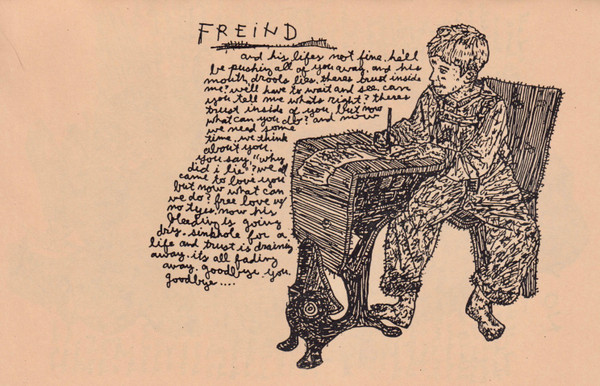 FREIND
and his lifes not fine. he'll
be pushing all of you away. and his
mouth drools lies. theres trust inside
me? we'll have to wait and see. can
you tell me whats right? theres
trust inside of you, but now
what can you do? and now
we need some
time. we think
about you.
you say, "why
did i lie"? we all
came to love you
but now what can
we do? free love w/
no tyes. now his
is going
dry. sinkhole for a
life and trust is draining
away. it's all fading
away. goodbye. you.
goodbye....